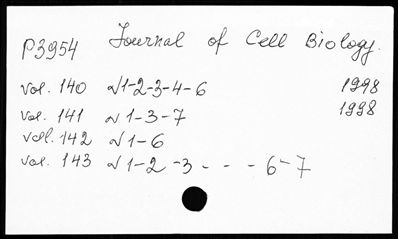 P3954 Journal of Cell Biology.
vol. 140 N1-2-3-4-6 1998
vol. 141 N1-3-7 1998
voll. 142 N1-6
vol. 143 N1-2-3- - - -6-7